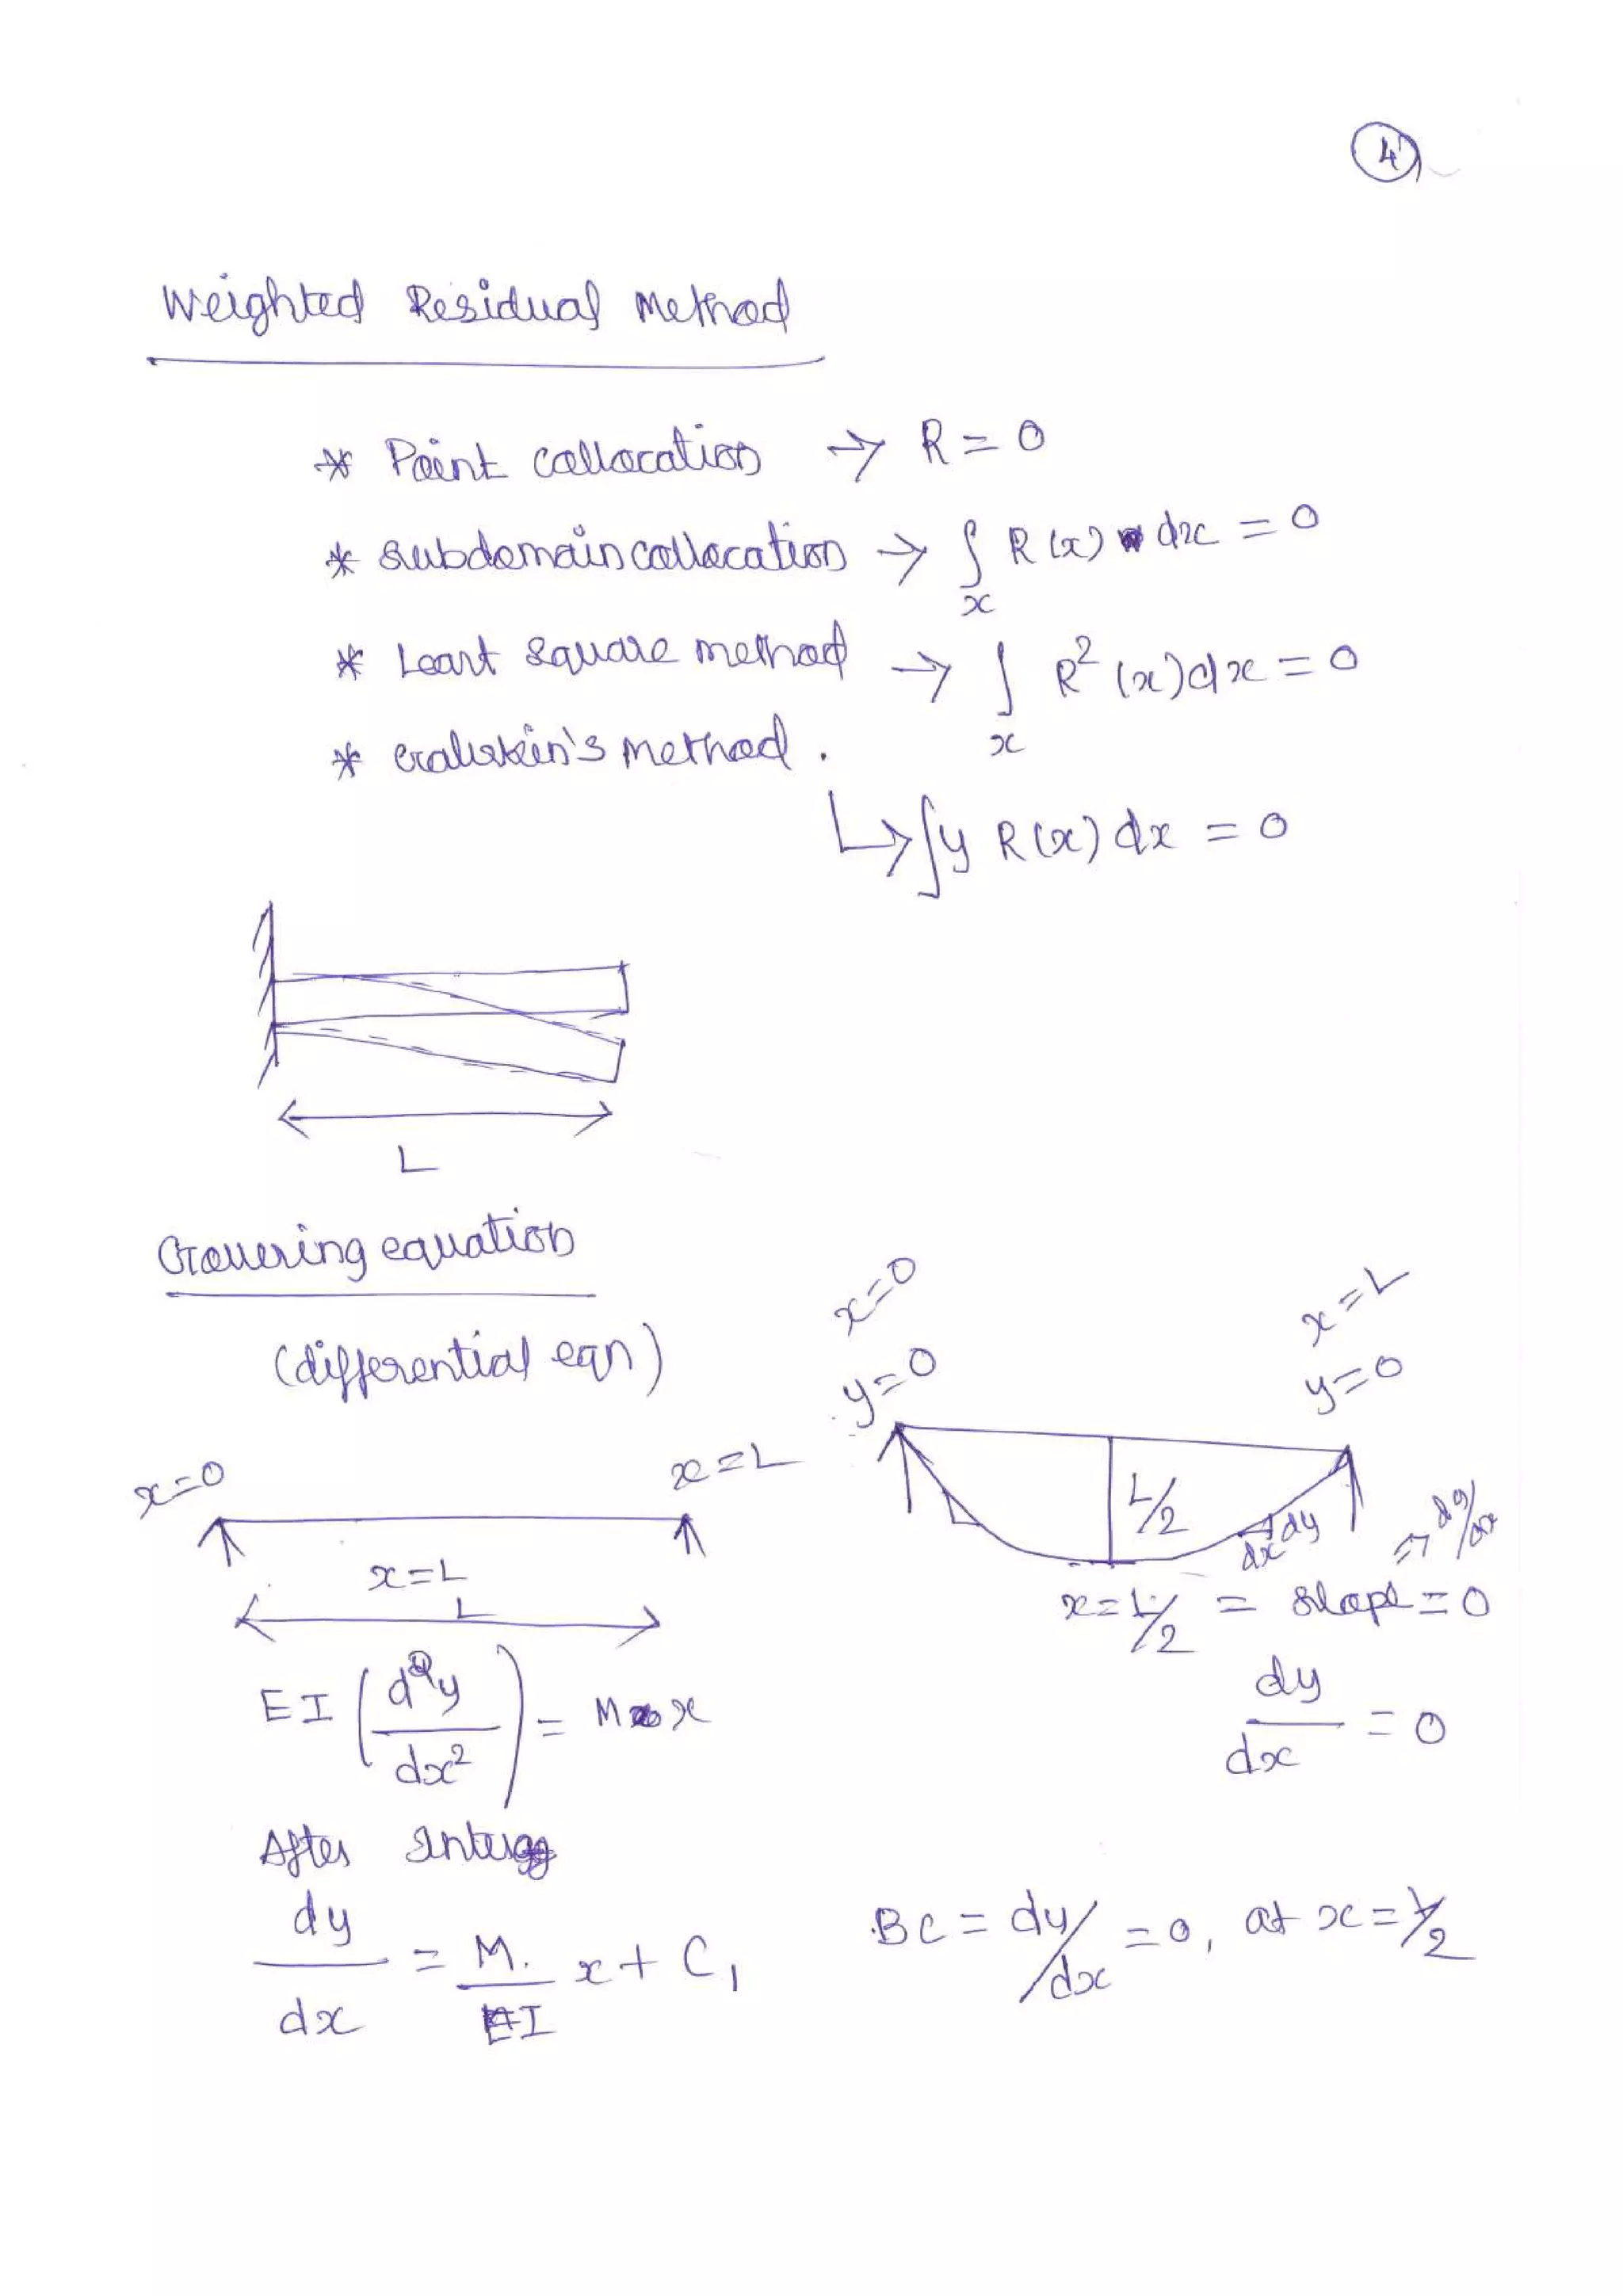 4
Weighted Residual Method
* Point collocation → R = 0
* Subdomain collocation → ∫x R(x) dx = 0
* Least square method → ∫x R²(x) dx = 0
* Galerkin's method.
↳ ∫y R(x) dx = 0
L
Governing equation
(differential eqn)
x=0 x=L
y=0 y=0
x=0 x=L
L/2 dy dx ⇒ dy/dx
x=L
L
x=L/2 = slope = 0
EI (d²y/dx²) = M x
dy/dx = 0
After
dy/dx = M./EI x + C₁
BC = dy/dx = 0, at x = L/2